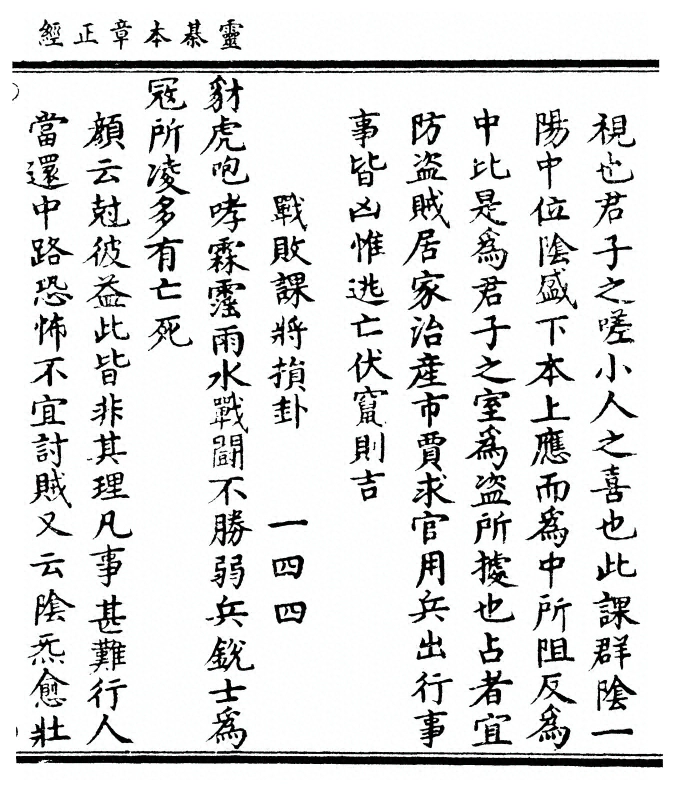 靈棊本章正經
視也君子之嗟小人之喜也此課群陰一
陽中位陰盛下本上應而爲中所阻反爲
中比是爲君子之室爲盗所據也占者宜
防盗賊居家治產市賈求官用兵出行事
事皆凶惟逃亡伏竄則吉
戰敗課將損卦 一四四
豺虎咆哮霖霪雨水戰鬪不勝弱兵銳士爲
冦所凌多有亡死
顔云尅彼益此皆非其理凡事甚難行人
當還中路恐怖不宜討賊又云陰炁愈壯